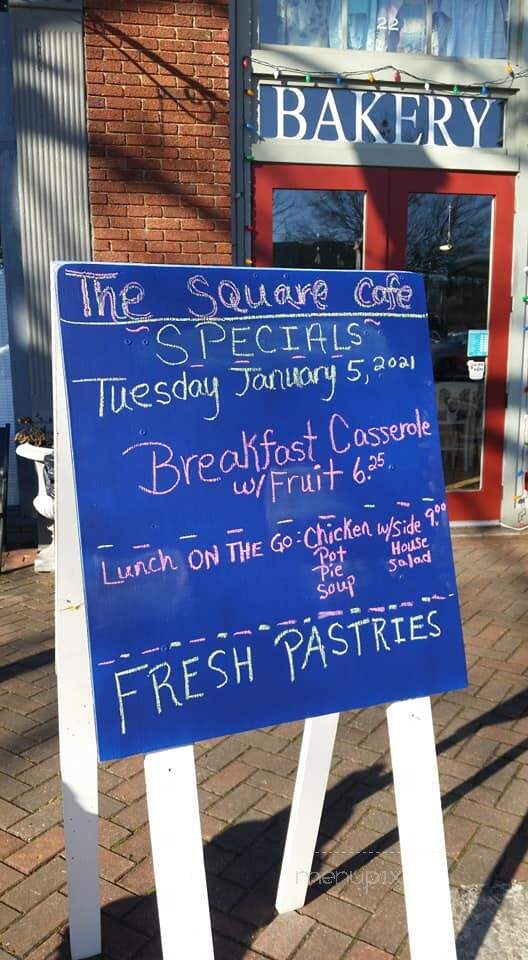 22
BAKERY
The Square Cafe
SPECIALS
Tuesday January 5, 2021
Breakfast Casserole
w/ Fruit 6.25
Lunch ON THE GO: Chicken w/side 9.00
Pot House
Pie Salad
Soup
FRESH PASTRIES
menupix